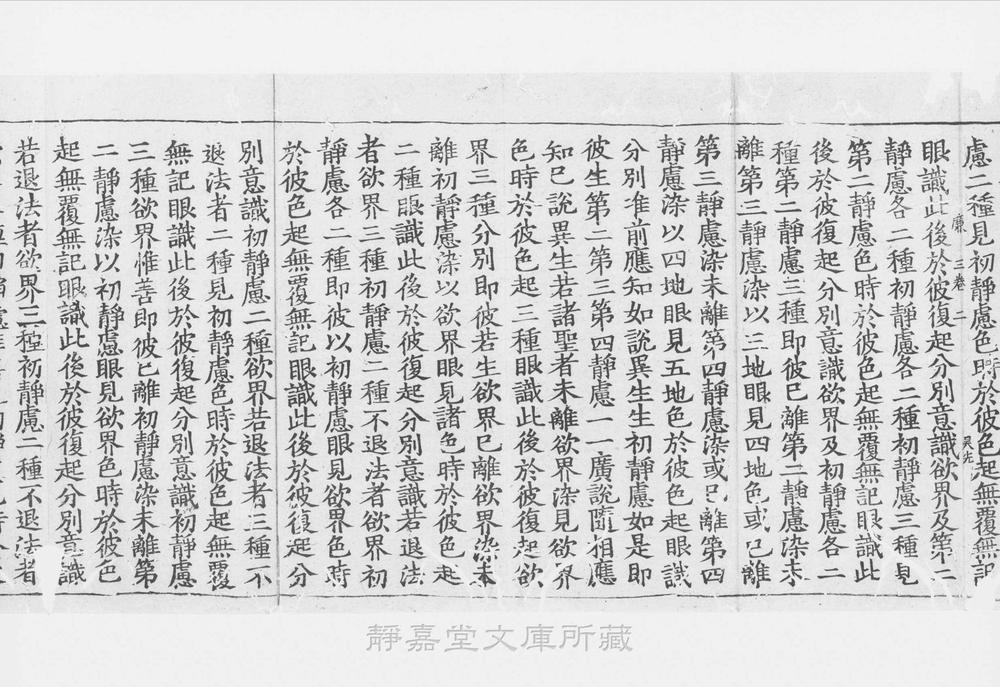 慮二種見初靜慮色時於彼色起無覆無記
廉 三卷 二
眼識此後於彼復起分別意識欲界及第二
靜慮各二種初靜慮各二種初靜慮三種見
第二靜慮色時於彼色起無覆無記眼識此
後於彼復起分別意識欲界及初靜慮各二
種第二靜慮三種即彼已離第二靜慮染未
離第三靜慮染以三地眼見四地色或已離
第三靜慮染未離第四靜慮染或已離第四
靜慮染以四地眼見五地色於彼色起眼識
分別准前應知如說異生生初靜慮如是即
彼生第二第三第四靜慮一一廣說隨相應
知已說異生若諸聖者未離欲界染見欲界
色時於彼色起三種眼識此後於彼復起欲
界三種分別即彼若生欲界已離欲界染未
離初靜慮染以欲界眼見諸色時於彼色起
二種眼識此後於彼復起分別意識若退法
者欲界三種初靜慮二種不退法者欲界初
靜慮各二種即彼以初靜慮眼見欲界色時
於彼色起無覆無記眼識此後於彼復起分
別意識初靜慮二種欲界若退法者三種不
退法者二種見初靜慮色時於彼色起無覆
無記眼識此後於彼復起分別意識初靜慮
三種欲界惟善即彼已離初靜慮染未離第
二靜慮染以初靜慮眼見欲界色時於彼色
起無覆無記眼識此後於彼復起分別意識
若退法者欲界三種初靜慮二種不退法者
靜嘉堂文庫所藏